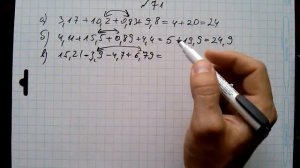 71
а) 3,17+10,2+0,83+9,8=4+20=24
б) 4,11+15,5+0,89+4,4=5+19,9=24,9
в) 15,21-3,9-4,7+6,79=